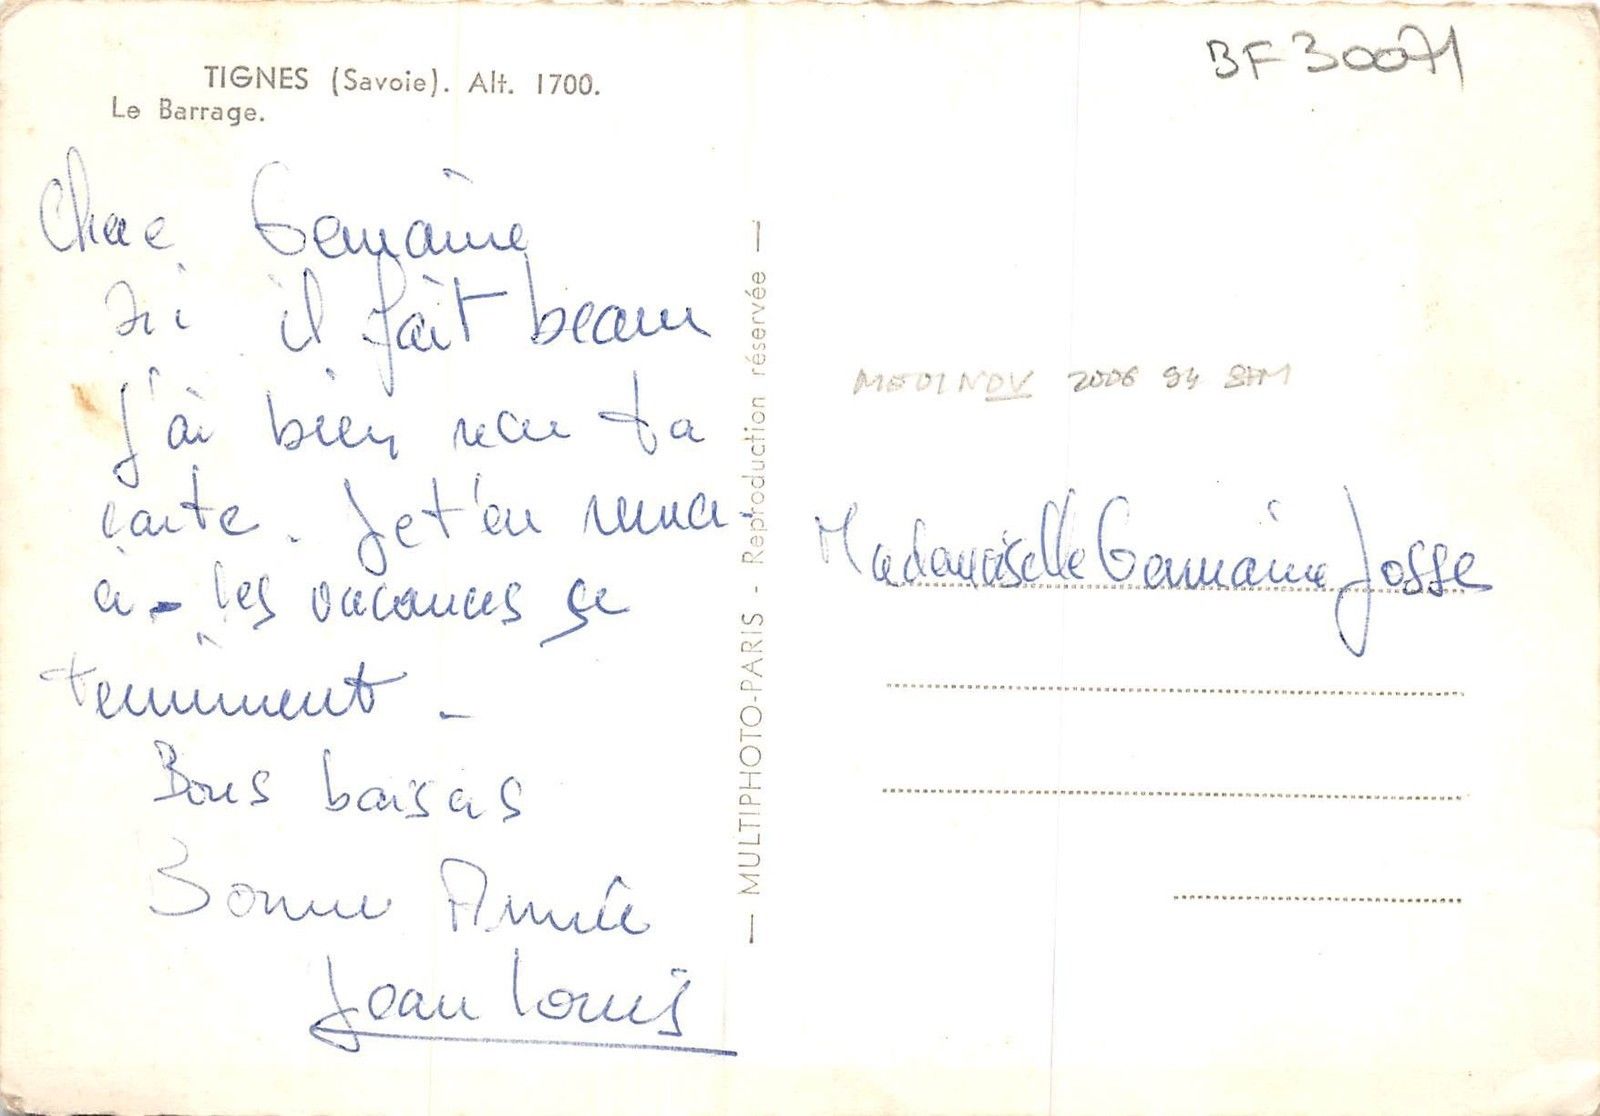 TIGNES (Savoie). Alt. 1700.
Le Barrage.
Chère Germaine
Ici il fait beau
j'ai bien reçu ta
carte. Je t'en remer
cie - les vacances se
terminent -
Bons baisers
Bonne Année
Jean Louis
— MULTIPHOTO-PARIS - Reproduction réservée —
BF 30071
NOV 2006 94
Mademoiselle Germaine Josse